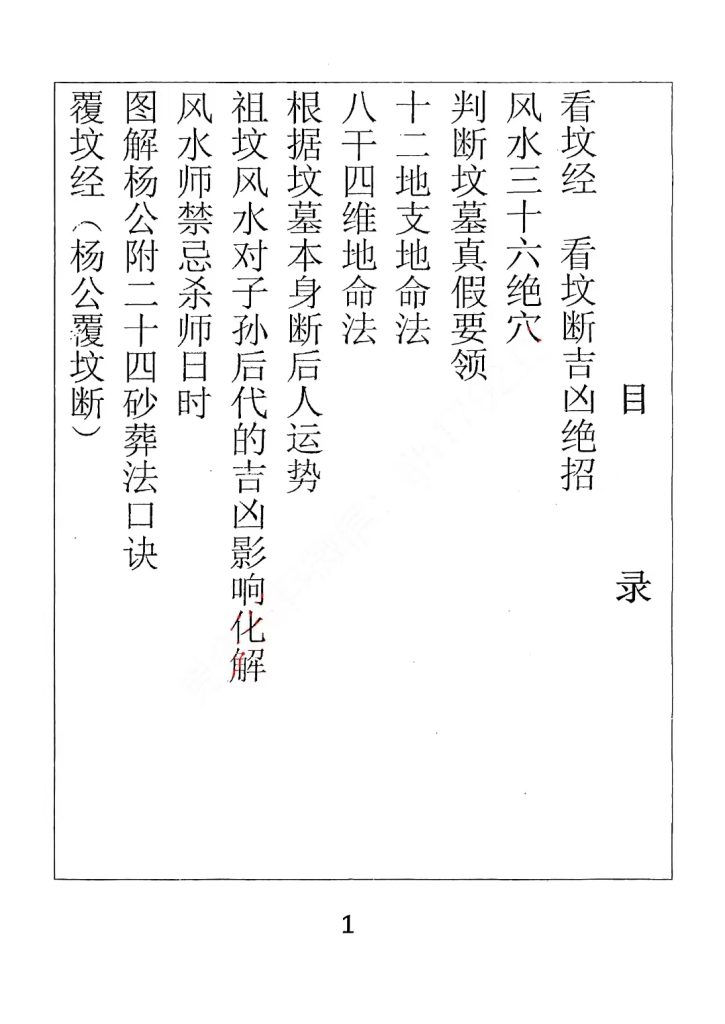 目录
看坟经 看坟断吉凶绝招
风水三十六绝穴
判断坟墓真假要领
十二地支地命法
八干四维地命法
根据坟墓本身断后人运势
祖坟风水对子孙后代的吉凶影响化解
风水师禁忌杀师日时
图解杨公附二十四砂葬法口诀
覆坟经（杨公覆坟断）
1